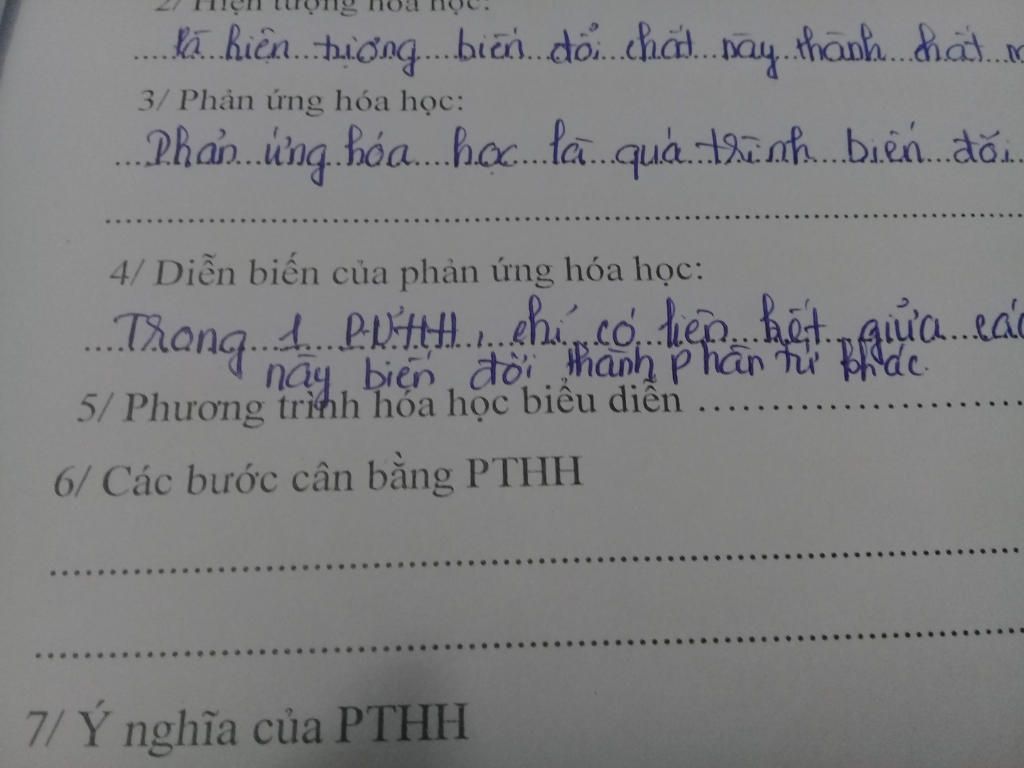 2/ Hiện tượng hóa học:
là hiện tượng biến đổi chất này thành chất
3/ Phản ứng hóa học:
Phản ứng hóa học là quá trình biến đổi
4/ Diễn biến của phản ứng hóa học:
Trong 1 PƯHH, chỉ có liên kết giữa các
này biến đổi thành phân tử khác.
5/ Phương trình hóa học biểu diễn
6/ Các bước cân bằng PTHH
7/ Ý nghĩa của PTHH